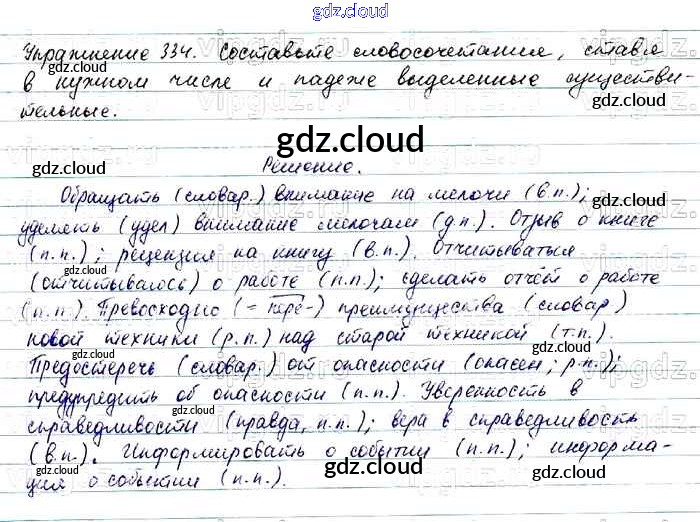 gdz.cloud
Упражнение 334. Составьте словосочетания, ставя
в нужном числе и падеже выделенные существи-
тельные.
gdz.cloud
Решение.
Обращать (словар.) внимание на мелочи (в.п.);
уделять (удел) внимание мелочам (д.п.). Отзыв о книге
(п.п.); рецензия на книгу (в.п.). Отчитываться
(отчитывалось) о работе (п.п.); сделать отчёт о работе
(п.п.). Превосходно (= пере-) преимущества (словар)
новой техники (р.п.) над старой техникой (т.п.).
Предостеречь (словар.) от опасности (опасен; р.п.);
предупредить об опасности (п.п.). Уверенность в
справедливости (правда, п.п.); вера в справедливость
(в.п.). Информировать о событии (п.п.); информа-
ция о событии (п.п.).
gdz.cloud